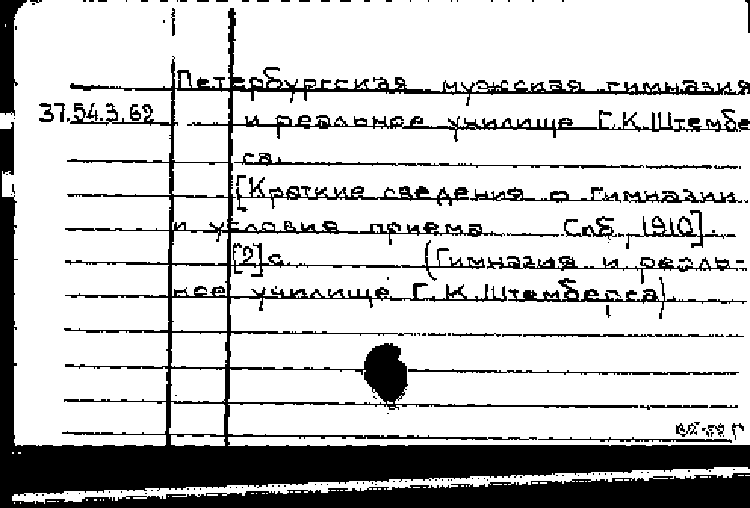 Петербургская мужская гимназия
37.54.3.62 и реальное училище Г.К.Штембе
са.
[Краткие сведения о гимназии
и условия приема. Спб, 1910].
[2]с. (Гимназия и реаль-
ное училище Г.К.Штемберса).